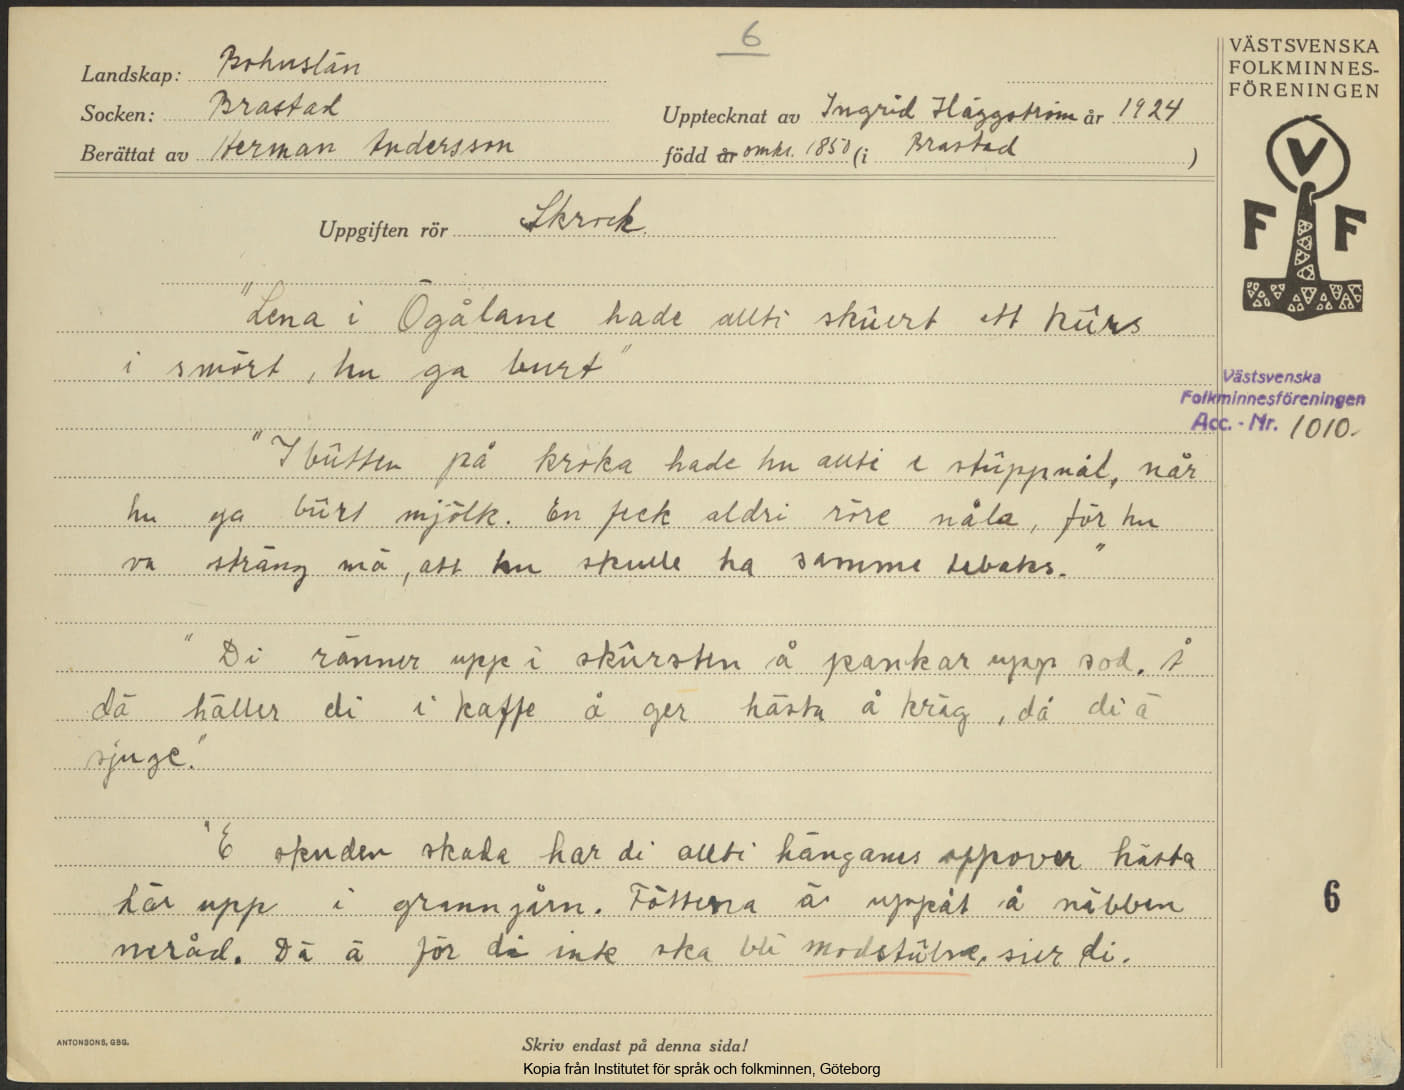 6
VÄSTSVENSKA
FOLKMINNES-
FÖRENINGEN
Landskap: Bohuslän
Socken: Brastad
Upptecknat av Ingrid Häggström år 1924
Berättat av Herman Andersson
född år omkr. 1850 (i Brastad )
Uppgiften rör Skrock.
V
F F
"Lena i Ögålane hade allti skûert ett kûrs
i smört, hu ga burt"
Västsvenska
Folkminnesföreningen
Acc. - Nr. 1010.
"I bûtten på kröka hade hu allti e stûppnål, når
hu ga bûrt mjölk. En feck aldri röre nåla, för hu
va sträng mä, att hu skulle ha samme tebaks."
"Di ränner upp i skûrsten å pankar upp sod. Å
dä häller di i kaffe å ger hästa å kräg, då di ä
sjuge."
"E skuden skada har di allti hänganes oppover hästa
här upp i granngårn. Föttena är uppåt å näbben
neråd. Dä ä för di inte ska bli modstûlne, sier di.
6
ANTONSONS, GBG.
Skriv endast på denna sida!
Kopia från Institutet för språk och folkminnen, Göteborg